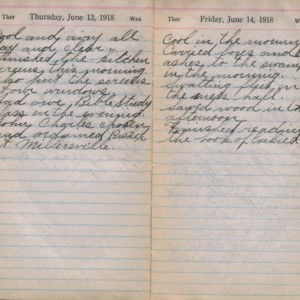 Ther Thursday, June 13, 1918 Wea
Cool and airy all
day and clear
finished the kitchen
this morning
also put the screens
four windows
Had our Bible Study
class in the evening.
John Charles chosen
and ordained
at
Ther Friday, June 14, 1918 W
Cool in the morning
Carried and
ashes to the swamp
in the morning.
Swatting flys in
the mess hall.
Sawed wood in the
afternoon
Finished reading
the book of